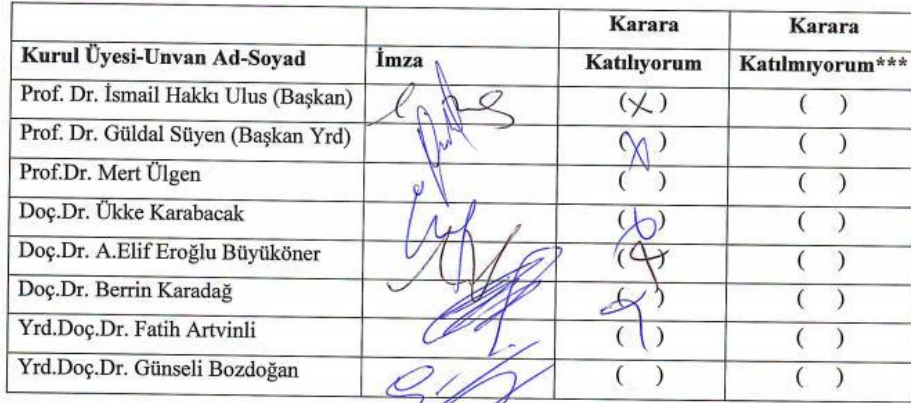 Karara Karara
Kurul Üyesi-Unvan Ad-Soyad İmza Katılıyorum Katılmıyorum***
Prof. Dr. İsmail Hakkı Ulus (Başkan) (X) ( )
Prof. Dr. Güldal Süyen (Başkan Yrd) (X) ( )
Prof.Dr. Mert Ülgen ( ) ( )
Doç.Dr. Ükke Karabacak ( ) ( )
Doç.Dr. A.Elif Eroğlu Büyüköner ( ) ( )
Doç.Dr. Berrin Karadağ ( ) ( )
Yrd.Doç.Dr. Fatih Artvinli ( ) ( )
Yrd.Doç.Dr. Günseli Bozdoğan ( ) ( )